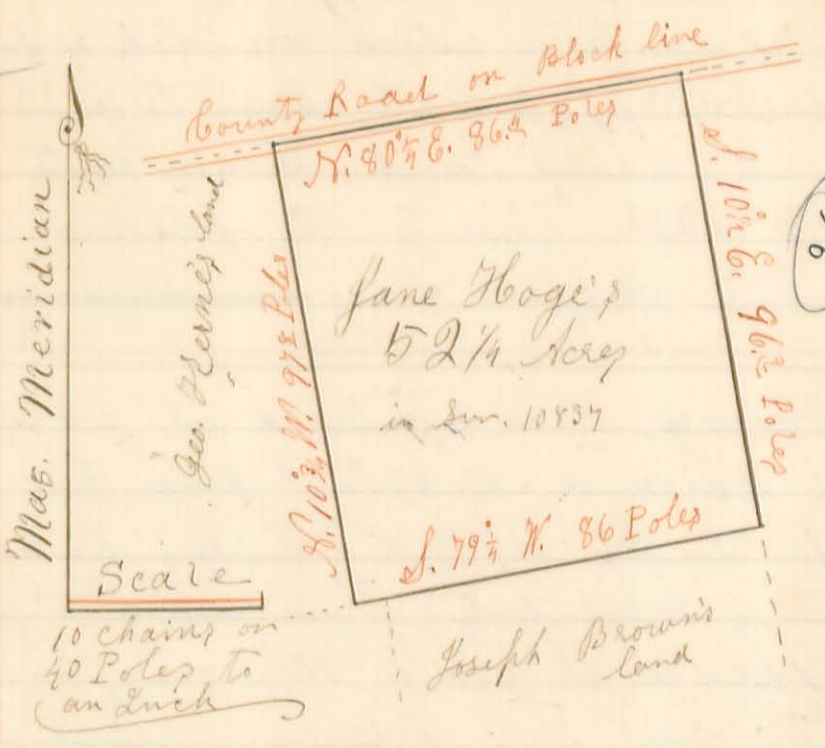 County Road on Block line
N. 80¼ E. 86.4 Poles
S. 10½ E. 96.2 Poles
Mag. Meridian
Geo. land
N. 10¾ W. Poles
Jane Hoge's
52¼ Acres
in Sur. 10837
S. 79¼ W. 86 Poles
Scale
10 chains or
40 Poles to
an Inch
Joseph Brown's
land